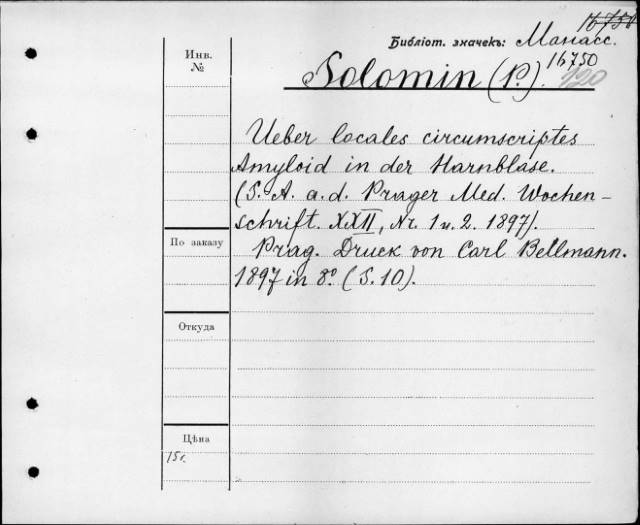 16750
Библіот. значекъ: Манасс.
16750
Инв.
№
Solomin (P.).
120
Ueber locales circumscriptes
Amyloid in der Harnblase.
(S. A. a. d. Prager Med. Wochen-
schrift. XXII, Nr. 1 u. 2. 1897).
По заказу
Prag. Druck von Carl Bellmann.
1897 in 8º. (S. 10).
Откуда
Цѣна
15к.